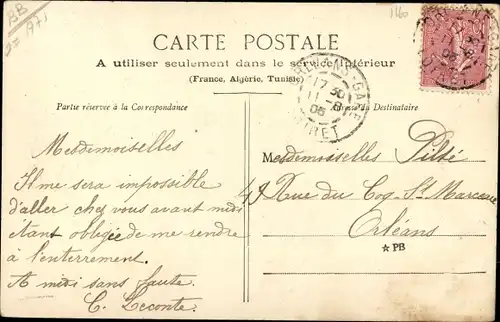 BB
116
CARTE POSTALE
A utiliser seulement dans le service intérieur
(France, Algérie, Tunisie)
Partie réservée à la Correspondance
du Destinataire
17 30
11
06
LOIRET
Mesdemoiselles
Il me sera impossible
d'aller chez vous avant midi
étant obligée de me rendre
à l'enterrement.
A midi sans faute.
C. Leconte.
Mesdemoiselles Pilté
49 Rue du Coq St Marceau
Orléans
★PB